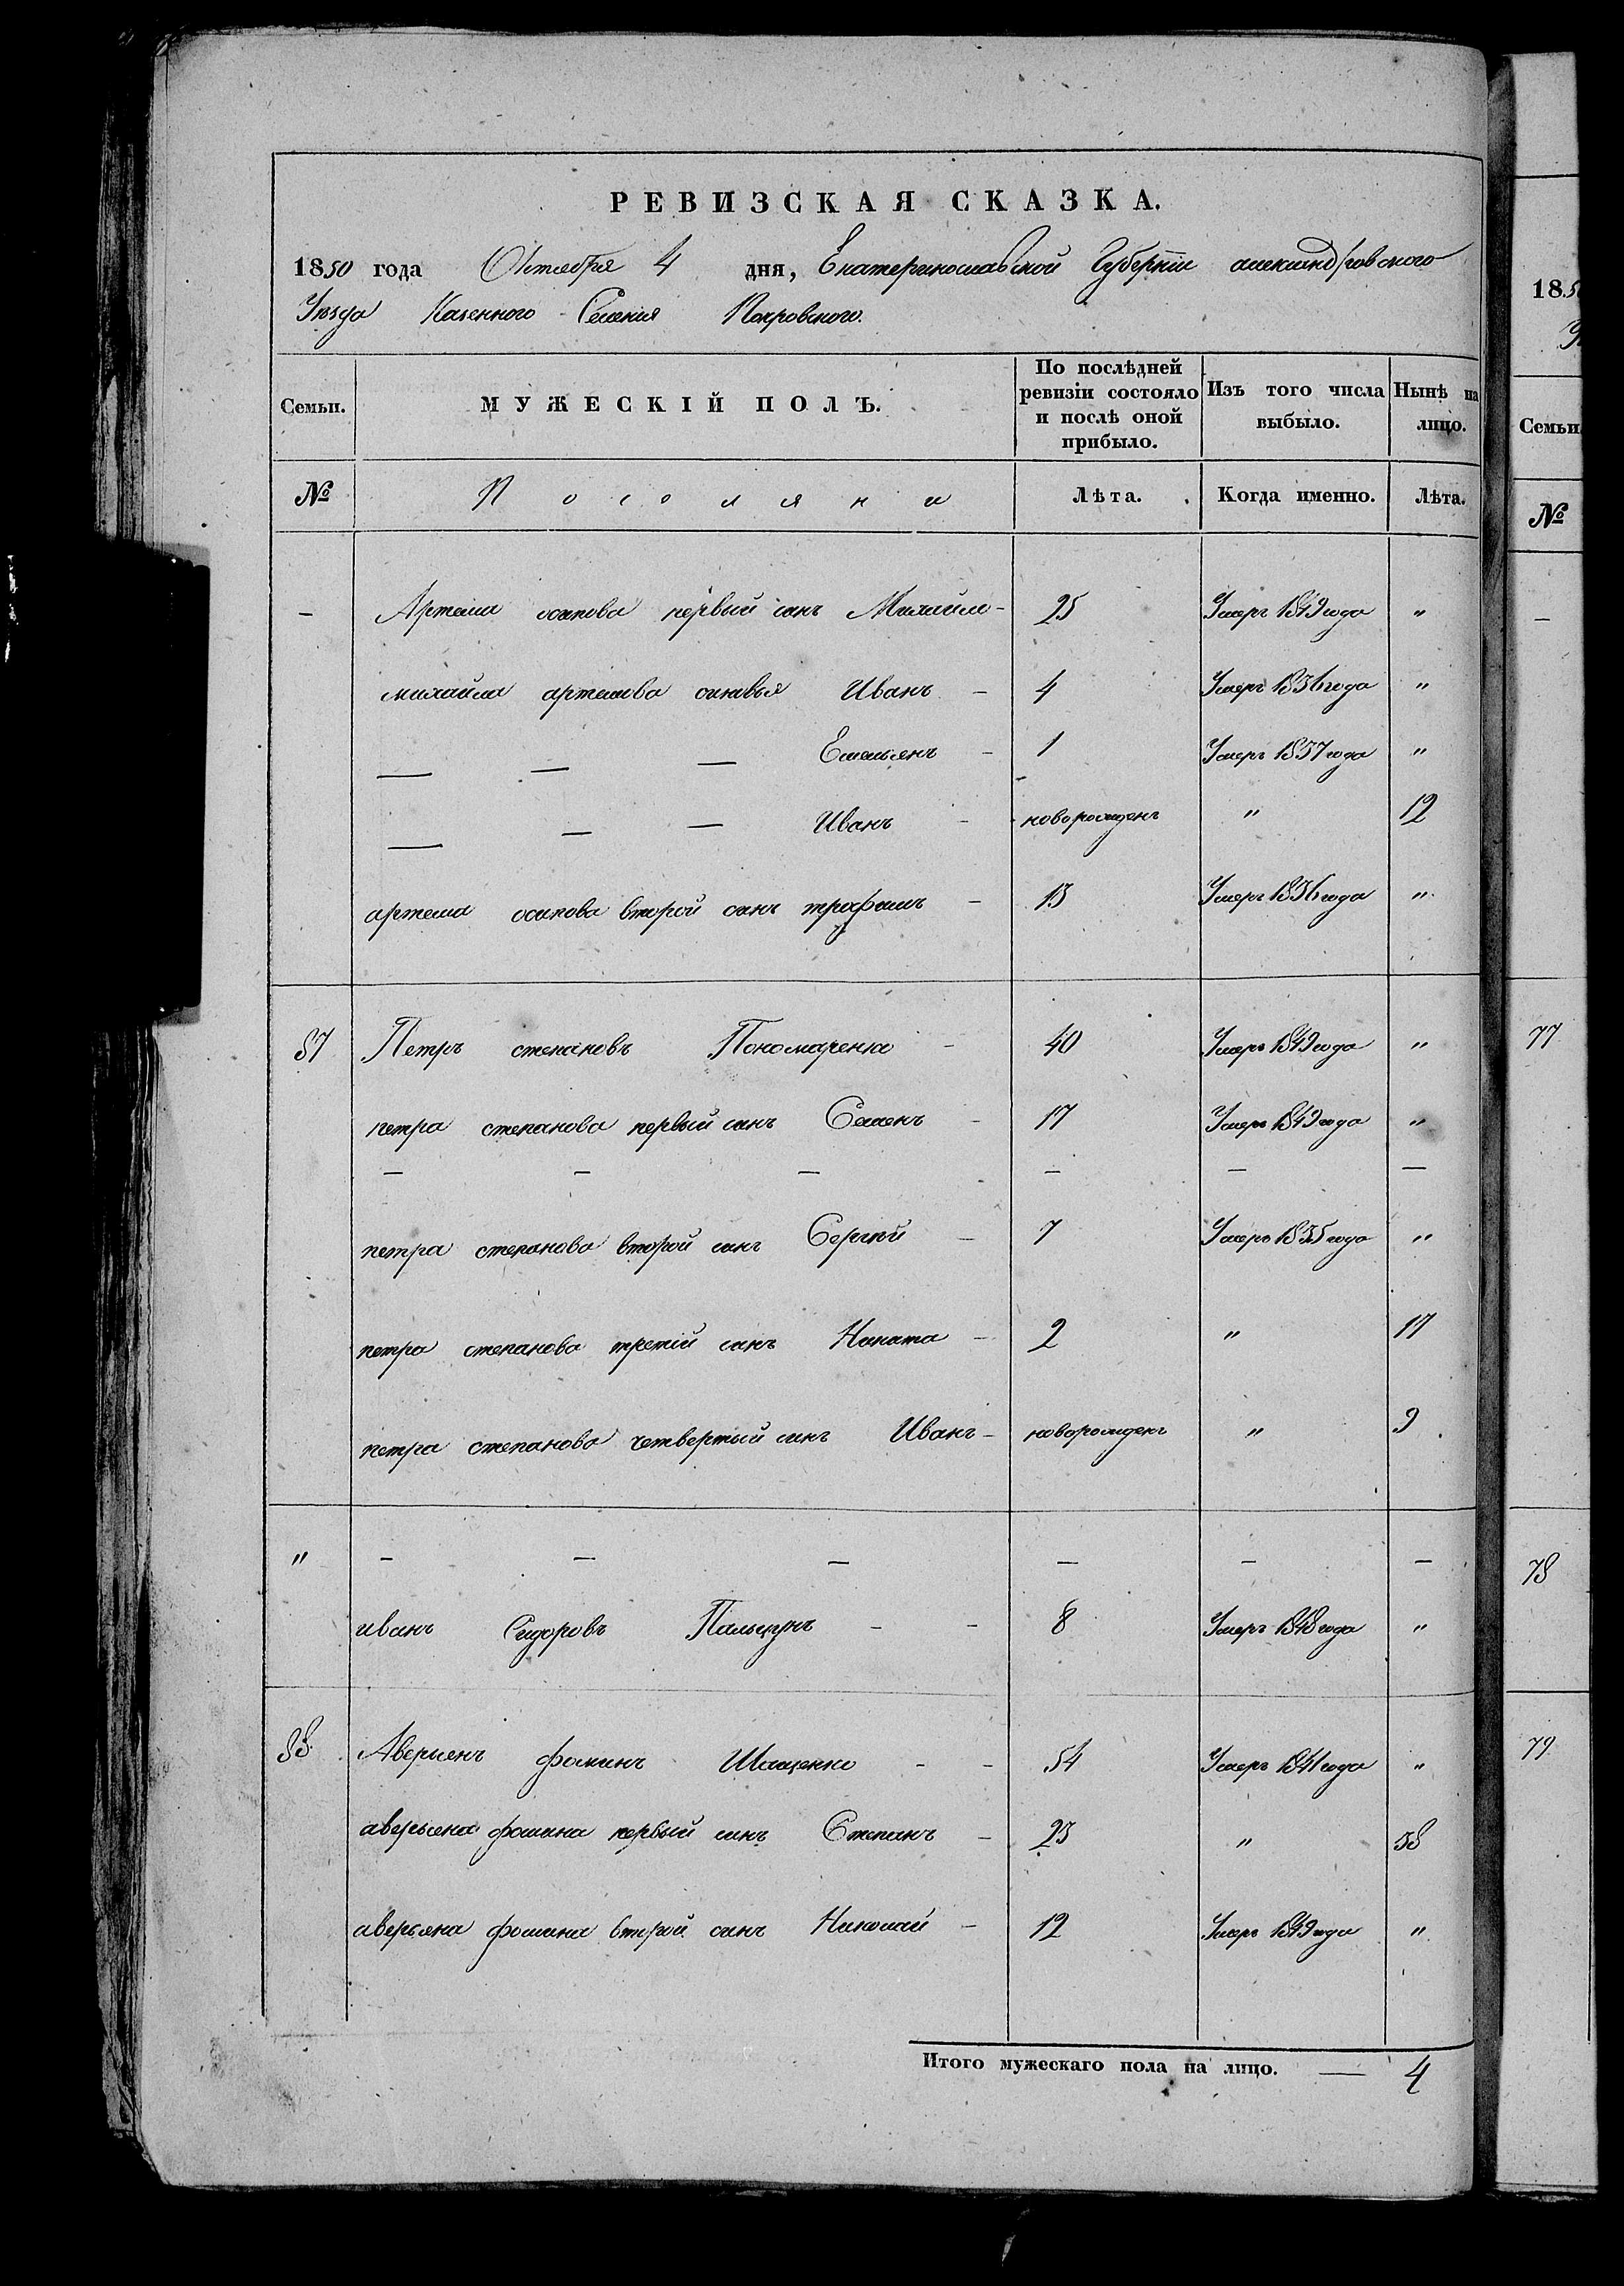 РЕВИЗСКАЯ СКАЗКА.
1850 года Октября 4 дня, Екатеринославской Губерніи александровского
Уезда Казенного Селения Покровского.
Семьи. МУЖЕСКІЙ ПОЛЪ. По послѣдней ревизіи состояло и послѣ оной прибыло. Изъ того числа выбыло. Нынѣ на лицо.
№ Поселяни Лѣта. Когда именно. Лѣта.
— Артема осипова первый синъ Михайло — 25 Умеръ 1849 года "
михайла артемова синовья Иванъ — 4 Умеръ 1836 года "
— — — Емельянъ — 1 Умеръ 1837 года "
— — — Иванъ — новорожденъ " 12
артема осипова второй синъ трофимъ — 13 Умеръ 1836 года "
87 Петръ степановъ Пономаренко — 40 Умеръ 1849 года "
петра степанова первый синъ Семенъ — 17 Умеръ 1849 года "
— — — — — —
петра степанова второй синъ Сергий — 7 Умеръ 1835 года "
петра степанова третій синъ Никита — 2 " 17
петра степанова четвертый синъ Иванъ — новорожденъ " 9
" — — — — — —
иванъ Сидоровъ Пальцунъ — — 8 Умеръ 1848 года "
88 Аверьянъ фоминъ Ищенко — — 54 Умеръ 1841 года "
аверьяна фомина первый синъ Степанъ — 23 " 38
аверьяна фомина второй синъ Николай — 12 Умеръ 1849 года "
Итого мужескаго пола на лицо. — 4
185
Семьи
№
—
77
78
79